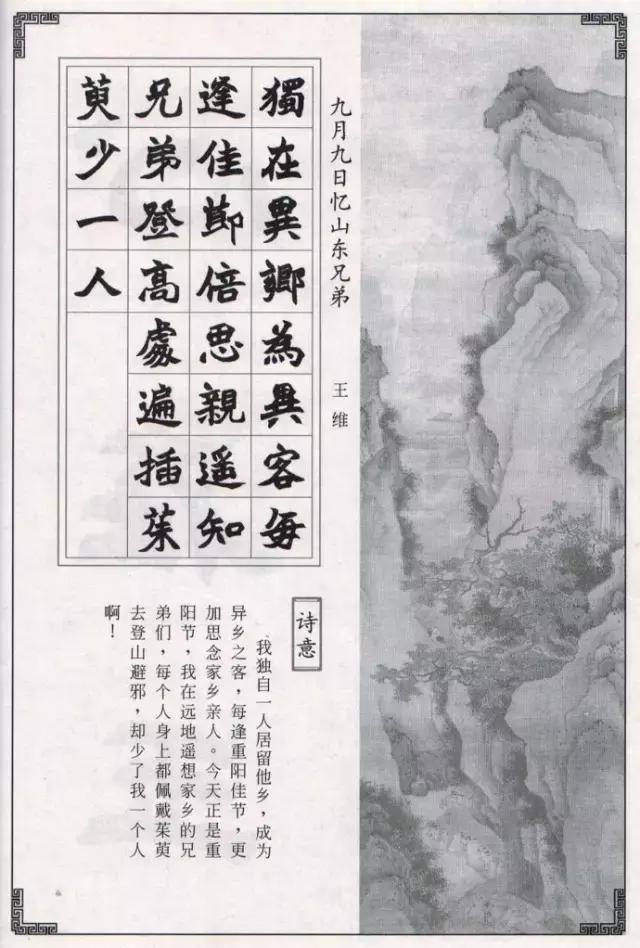 九月九日忆山东兄弟
王维
獨在異鄉為異客每
逢佳節倍思親遥知
兄弟登高處遍插茱
萸少一人
诗意
我独自一人居留他乡，成为
异乡之客，每逢重阳佳节，更
加思念家乡亲人。今天正是重
阳节，我在远地遥想家乡的兄
弟们，每个人身上都佩戴茱萸
去登山避邪，却少了我一个人
啊！